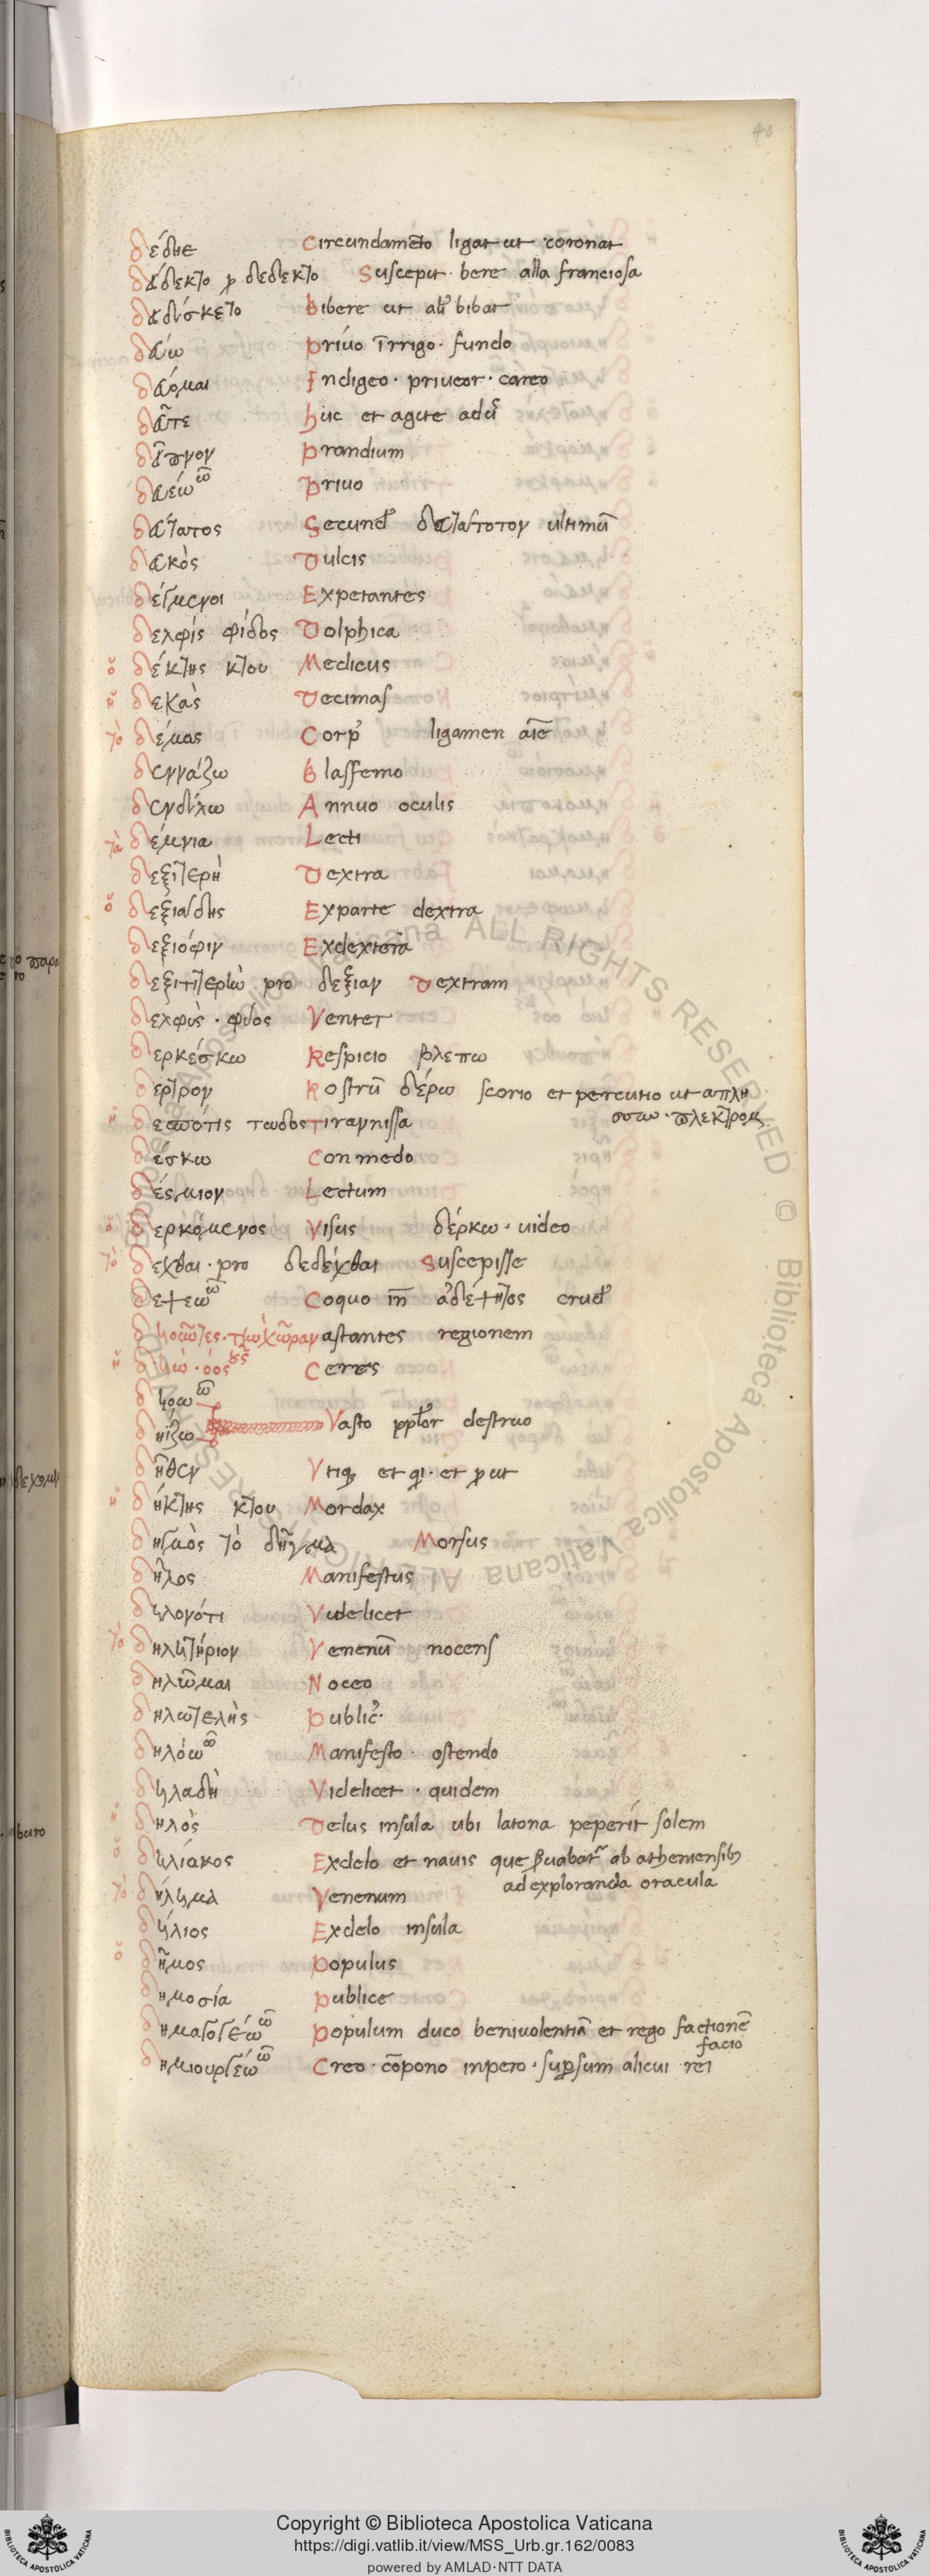 40
δέδηε Circundameto ligat ut coronat
δείδεκτο p δεδεκτο Suscepit · bere alla franciosa
δειδίσκετο Bibere ut aliꝰ bibat
δεύω Priuo īrrigo · fundo
δεύομαι Indigeo · priueor · careo
δεῦτε huc et agite
δεῖπνον Prandium
Priuo
δεύτατος Secundꝰ ultimū
Dulcis
δέγμενοι Expetantes
δελφίς φίδος Dolphica
ὁ δέκτης κτου Medicus
ἡ δεκὰς Decimas
τὸ δέμας Corpꝰ ligamen aīe
δεννάζω Blasfemo
δενδίλω Annuo oculis
τὰ δέμνια Lecti
δεξιτερὴ Dextra
ὁ δεξιάδης Exparte dextra
δεξιόφιν Exdextera
pro δεξιαν Dextram
δελφὺς · φύος Venter
δερκέσκω Respicio βλεπω
δερτρον Rostrū δέρω scorio et percutio ut
ἡ δεσπότις τωδος Tirannissa
δέσκω Conmedo
δέσμιον Lectum
ὁ δερκόμενος Visus δέρκω · uideo
τὸ δέχθαι · pro δεδέχθαι Suscepisse
δεψεω ῶ Coquo īn ἀδέψητος crudꝰ
δηοῶντες · τὴν χῶραν astantes regionem
ἡ δηὼ · όος οῦς Ceres
δηοω ῶ
δηΐζω Vasto ppłor destruo
δῆθεν Vtiqꝫ et qi · et put
ἡ δήκτης κτου Mordax
δηγμὸς τὸ δῆγμα Morsus
δῆλος Manifestus
δηλονότι Videlicet
τὸ δηλητήριον Venenū nocens
δηλῶμαι Noceo
δηλωτελὴς Public9
δηλόω ῶ Manifesto · ostendo
δηλαδὴ Videlicet · quidem
ἡ δηλὸς Delus insula ubi latona peperit solem
ὁ δηλίακος Exdelo et nauis que ab atheniensibꝫ
ad exploranda oracula
τὸ δήλημα Venenum
δήλιος Exdelo insula
ὁ δῆμος Populus
δημοσία Publice
δημαγογέω ῶ Populum duco beniuolentiā et rego factionē
facio
δημιουργέω ῶ Creo · cōpono inpero · supsum alicui rei
Copyright © Biblioteca Apostolica Vaticana
https://digi.vatlib.it/view/MSS_Urb.gr.162/0083
powered by AMLAD·NTT DATA